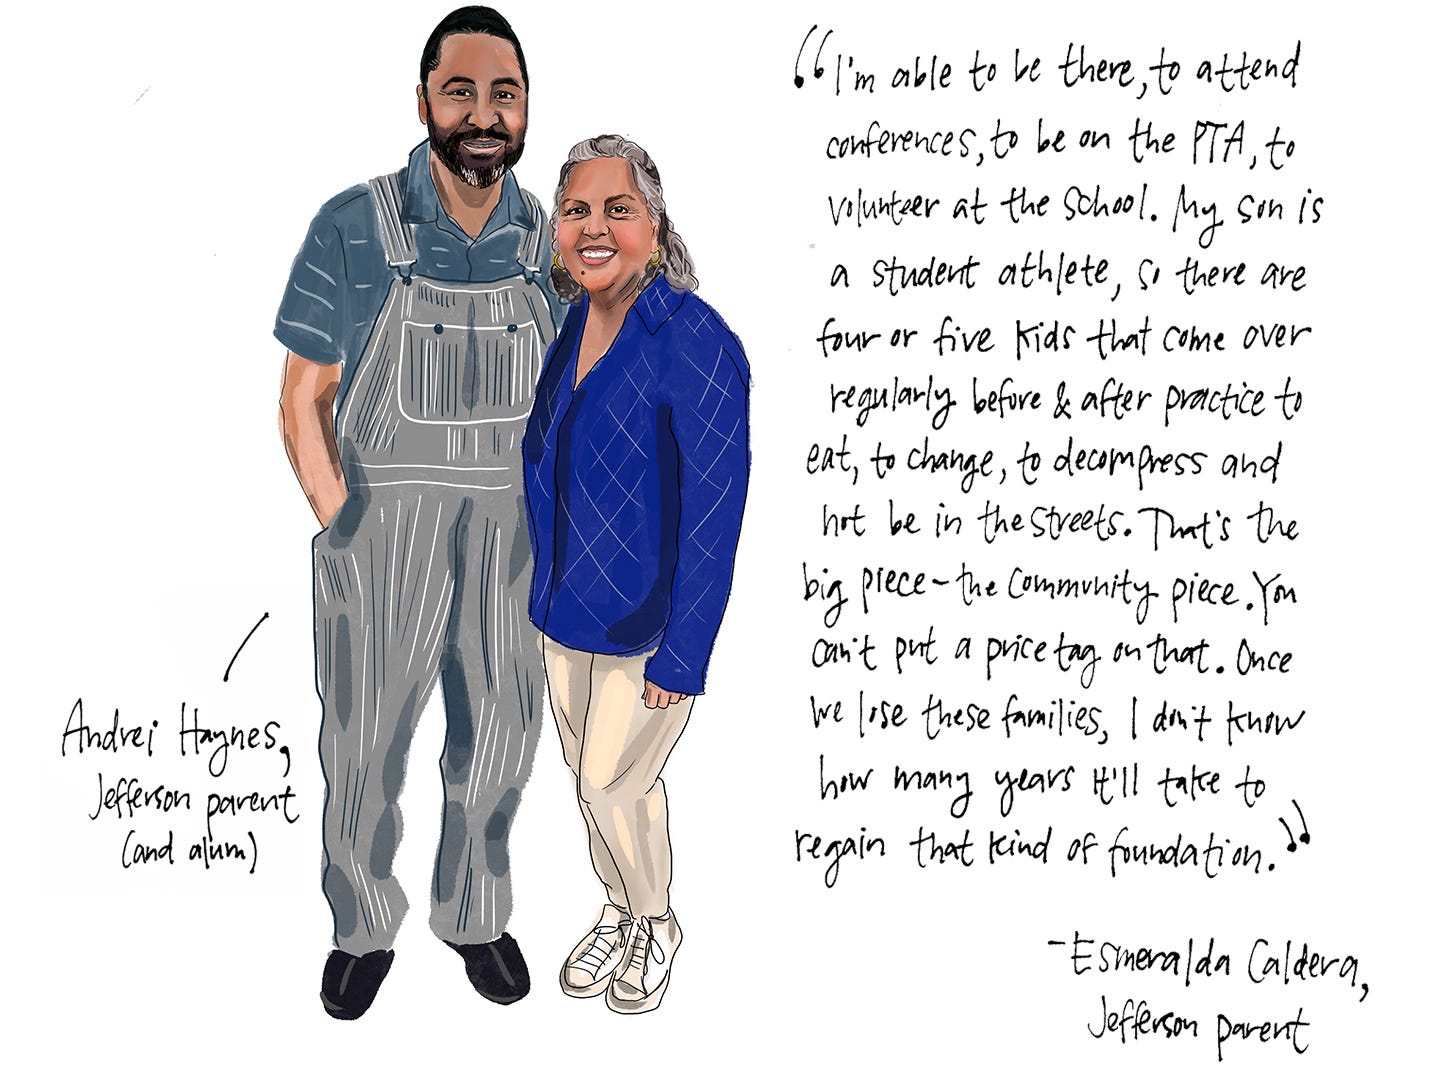 Andrei Haynes,
Jefferson parent
(and alum)
“I'm able to be there, to attend
conferences, to be on the PTA, to
volunteer at the school. My son is
a student athlete, so there are
four or five kids that come over
regularly before & after practice to
eat, to change, to decompress and
not be in the streets. That's the
big piece – the community piece. You
can't put a price tag on that. Once
we lose these families, I don't know
how many years it'll take to
regain that kind of foundation.”
- Esmeralda Caldera,
Jefferson parent